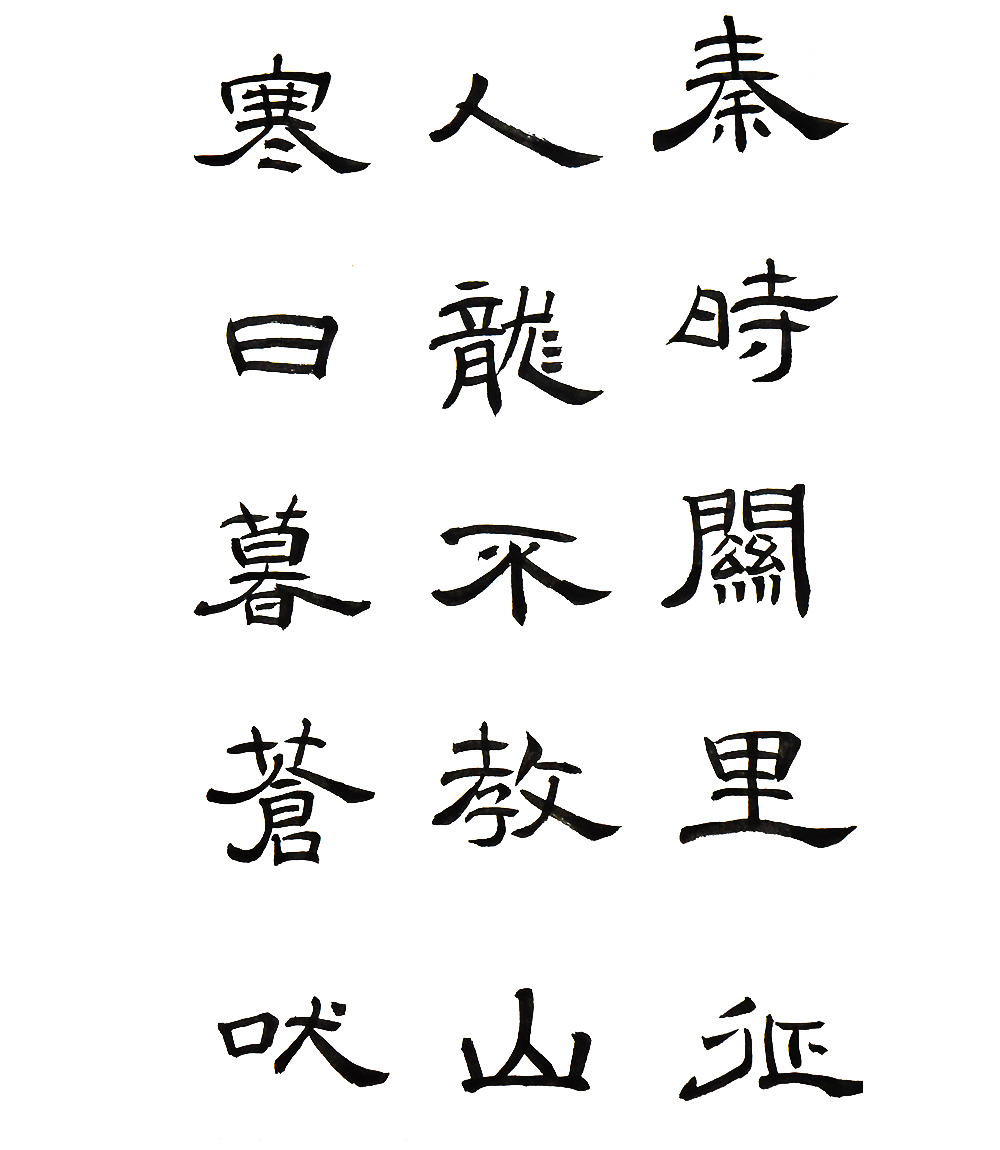 秦時關里征
人龍不教山
寒日暮蒼吠